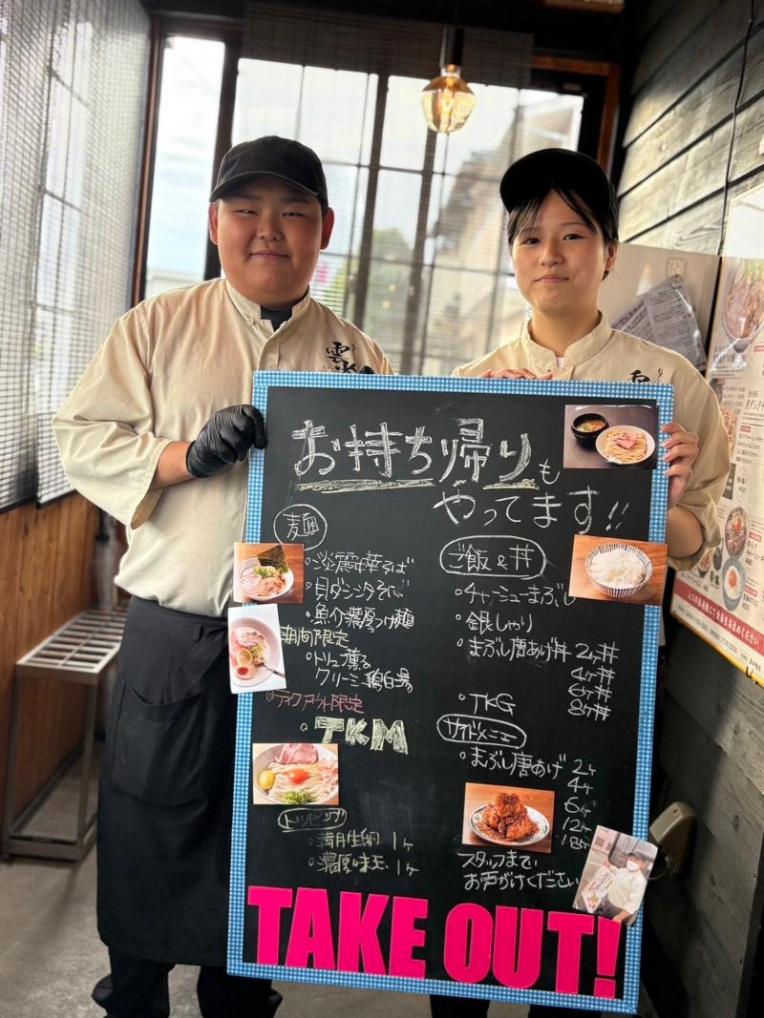 お持ち帰りも
やってます!!
麺
・淡麗中華そば
・貝ダシシオそば
・魚介濃厚つけ麺
期間限定
・トリュフ薫る
クリーミー鶏白湯
テイクアウト限定
・TKM
トッピング
・満月生卵 1ヶ
・濃厚味玉 1ヶ
ご飯&丼
・チャーシューまぶし
・銀しゃり
・まぶし唐あげ丼 2ヶ丼
4ヶ丼
6ヶ丼
8ヶ丼
・TKG
サイドメニュー
・まぶし唐あげ 2ヶ
4ヶ
6ヶ
12ヶ
18ヶ
スタッフまで
お声がけください
TAKE OUT!